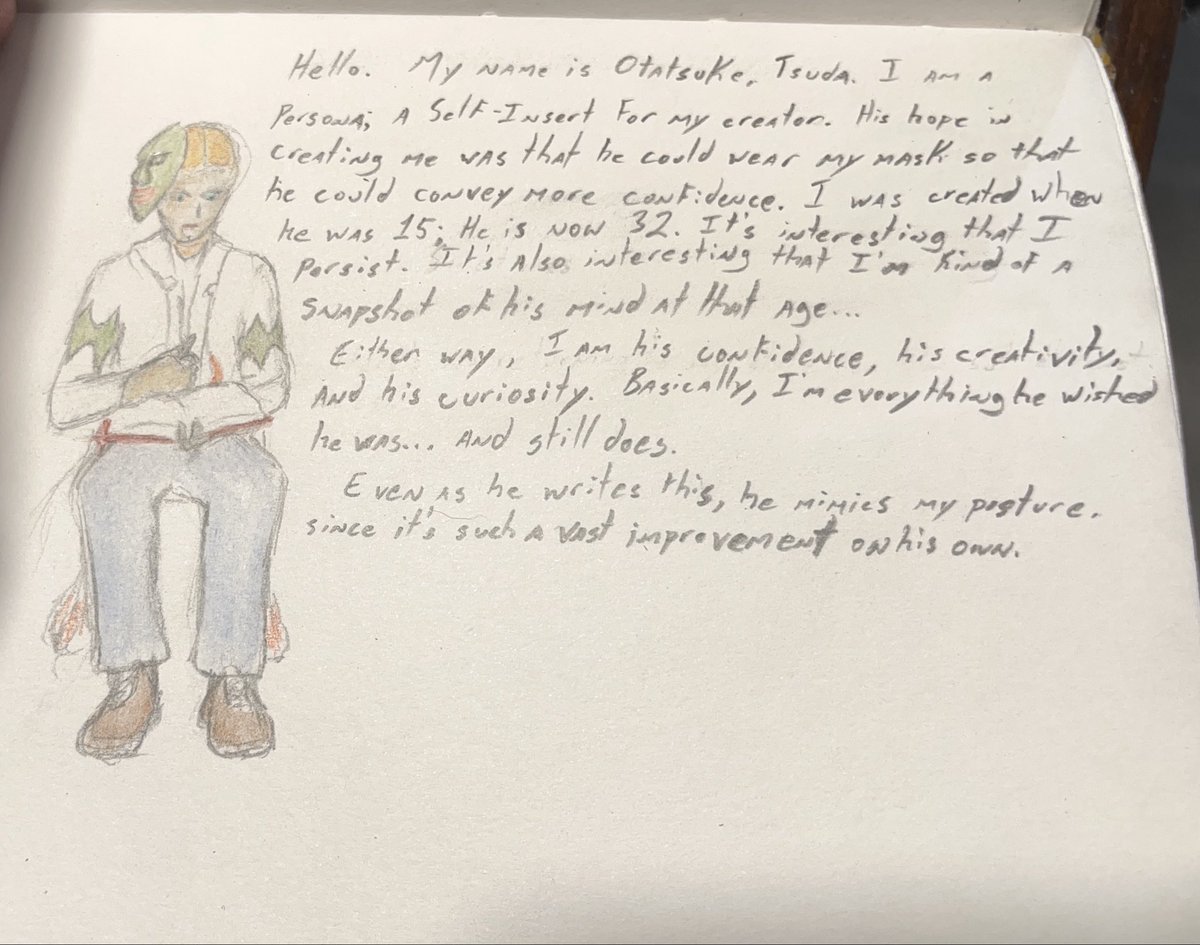 Hello. My name is Otatsuke, Tsuda. I am a
Persona; A Self-Insert For my creator. His hope in
creating me was that he could wear my mask so that
he could convey more confidence. I was created when
he was 15; He is now 32. It's interesting that I
Persist. It's also interesting that I'm kind of a
snapshot of his mind at that age...
Either way, I am his confidence, his creativity,
And his curiosity. Basically, I'm everything he wished
he was... And still does.
Even as he writes this, he mimics my posture.
since it's such a vast improvement on his own.